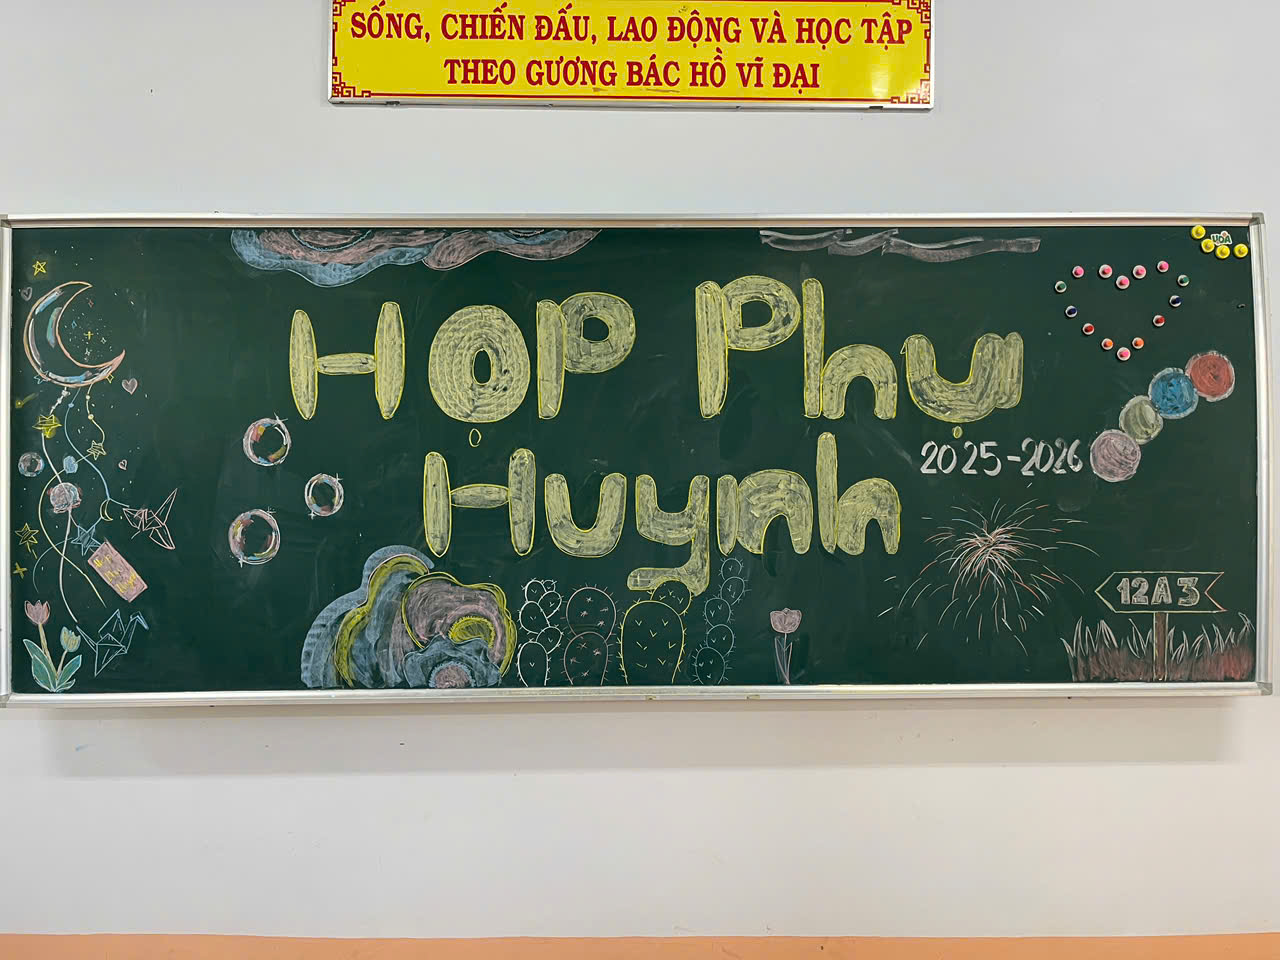 SỐNG, CHIẾN ĐẤU, LAO ĐỘNG VÀ HỌC TẬP
THEO GƯƠNG BÁC HỒ VĨ ĐẠI
HỌP Phụ
Huynh
2025-2026
12A3
HOÁ